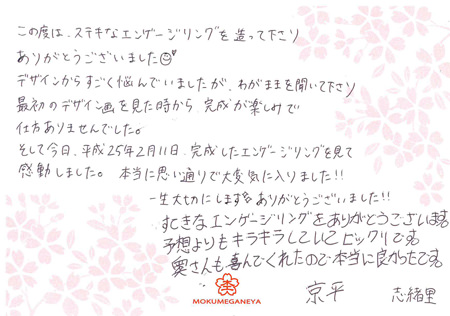 この度は、ステキなエンゲージリングを造って下さり
ありがとうございました
デザインからすごく悩んでいましたが、わがままを聞いて下さり
最初のデザイン画を見た時から 完成が楽しみで
仕方ありませんでした。
そして今日、平成25年2月11日、完成したエンゲージリングを見て
感動しました。 本当に思い通りで大変気に入りました!!
一生大切にします ありがとうございました!!
すてきなエンゲージリングをありがとうございます。
予想よりもキラキラしていてビックリです。
奥さんも喜んでくれたので本当に良かったです。
京平 志緒里
MOKUMEGANEYA